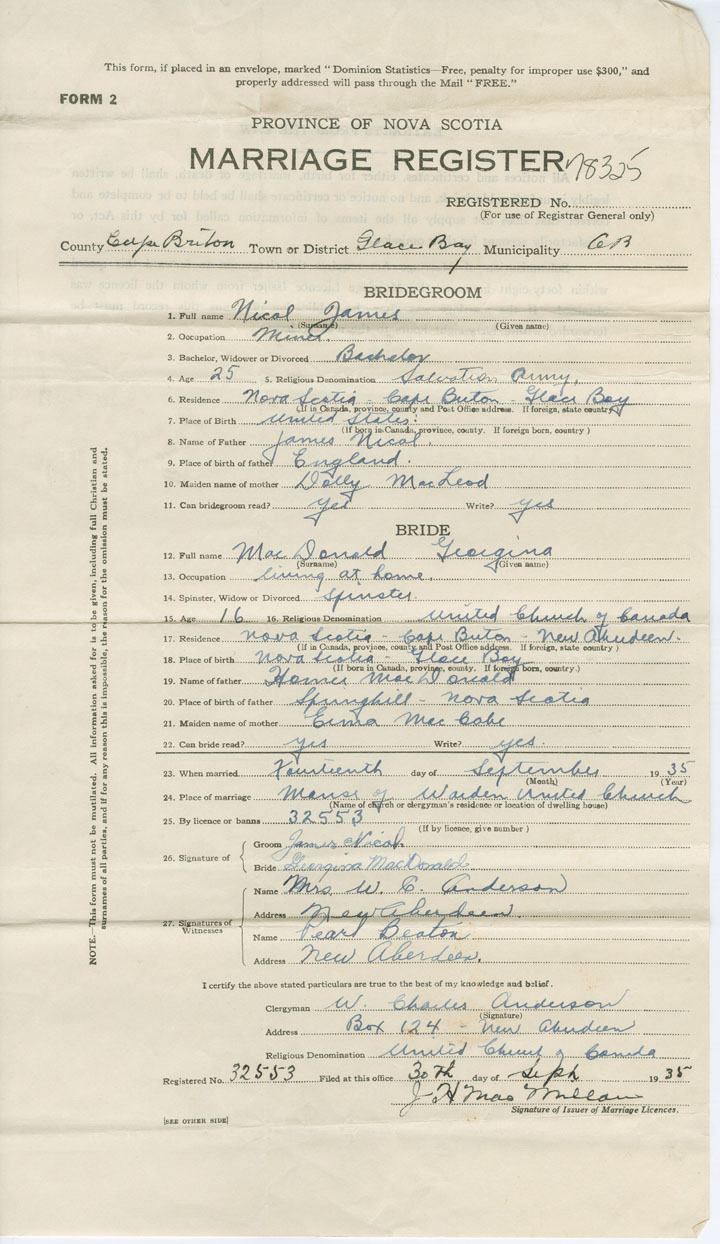 This form, if placed in an envelope, marked "Dominion Statistics—Free, penalty for improper use $300," and
properly addressed will pass through the Mail "FREE."
FORM 2
PROVINCE OF NOVA SCOTIA
MARRIAGE REGISTER 78325
REGISTERED No.
(For use of Registrar General only)
County Cape Briton Town or District Glace Bay Municipality CB
BRIDEGROOM
1. Full name Nicol James
(Surname) (Given name)
2. Occupation Miner.
3. Bachelor, Widower or Divorced Bachelor
4. Age 25 5. Religious Denomination Salvation Army,
6. Residence Nova Scotia - Cape Breton - Glace Bay
(If in Canada, province, county and Post Office address. If foreign, state country)
7. Place of Birth United States.
(If born in Canada, province, county. If foreign born, country)
8. Name of Father James Nicol.
9. Place of birth of father England.
10. Maiden name of mother Dolly MacLeod
11. Can bridegroom read? yes Write? yes
BRIDE
12. Full name MacDonald Georgina
(Surname) (Given name)
13. Occupation living at home.
14. Spinster, Widow or Divorced Spinster.
15. Age 16 16. Religious Denomination United Church of Canada
17. Residence Nova Scotia - Cape Breton - New Aberdeen.
(If in Canada, province, county and Post Office address. If foreign, state country)
18. Place of birth Nova Scotia - Glace Bay
(If born in Canada, province, county. If foreign born, country.)
19. Name of father MacDonald
20. Place of birth of father Springhill - Nova Scotia
21. Maiden name of mother MacCabe
22. Can bride read? yes Write? yes.
23. When married Fourteenth day of September 1935
(Month) (Year)
24. Place of marriage Manse of Warden United Church
(Name of church or clergyman's residence or location of dwelling house)
25. By licence or banns 32553
(If by licence, give number)
26. Signature of
Groom James Nicol
Bride Georgina MacDonald
27. Signatures of Witnesses
Name Mrs. W. C. Anderson
Address New Aberdeen.
Name Pearl Beaton
Address New Aberdeen.
I certify the above stated particulars are true to the best of my knowledge and belief.
Clergyman W. Charles Anderson
(Signature)
Address Box 124 - New Aberdeen
Religious Denomination United Church of Canada
Registered No. 32553 Filed at this office 30th day of Sept 1935
J H MacMillan
Signature of Issuer of Marriage Licences.
[SEE OTHER SIDE]
NOTE.—This form must not be mutilated. All information asked for is to be given, including full Christian and
surnames of all parties, and if for any reason this is impossible, the reason for the omission must be stated.